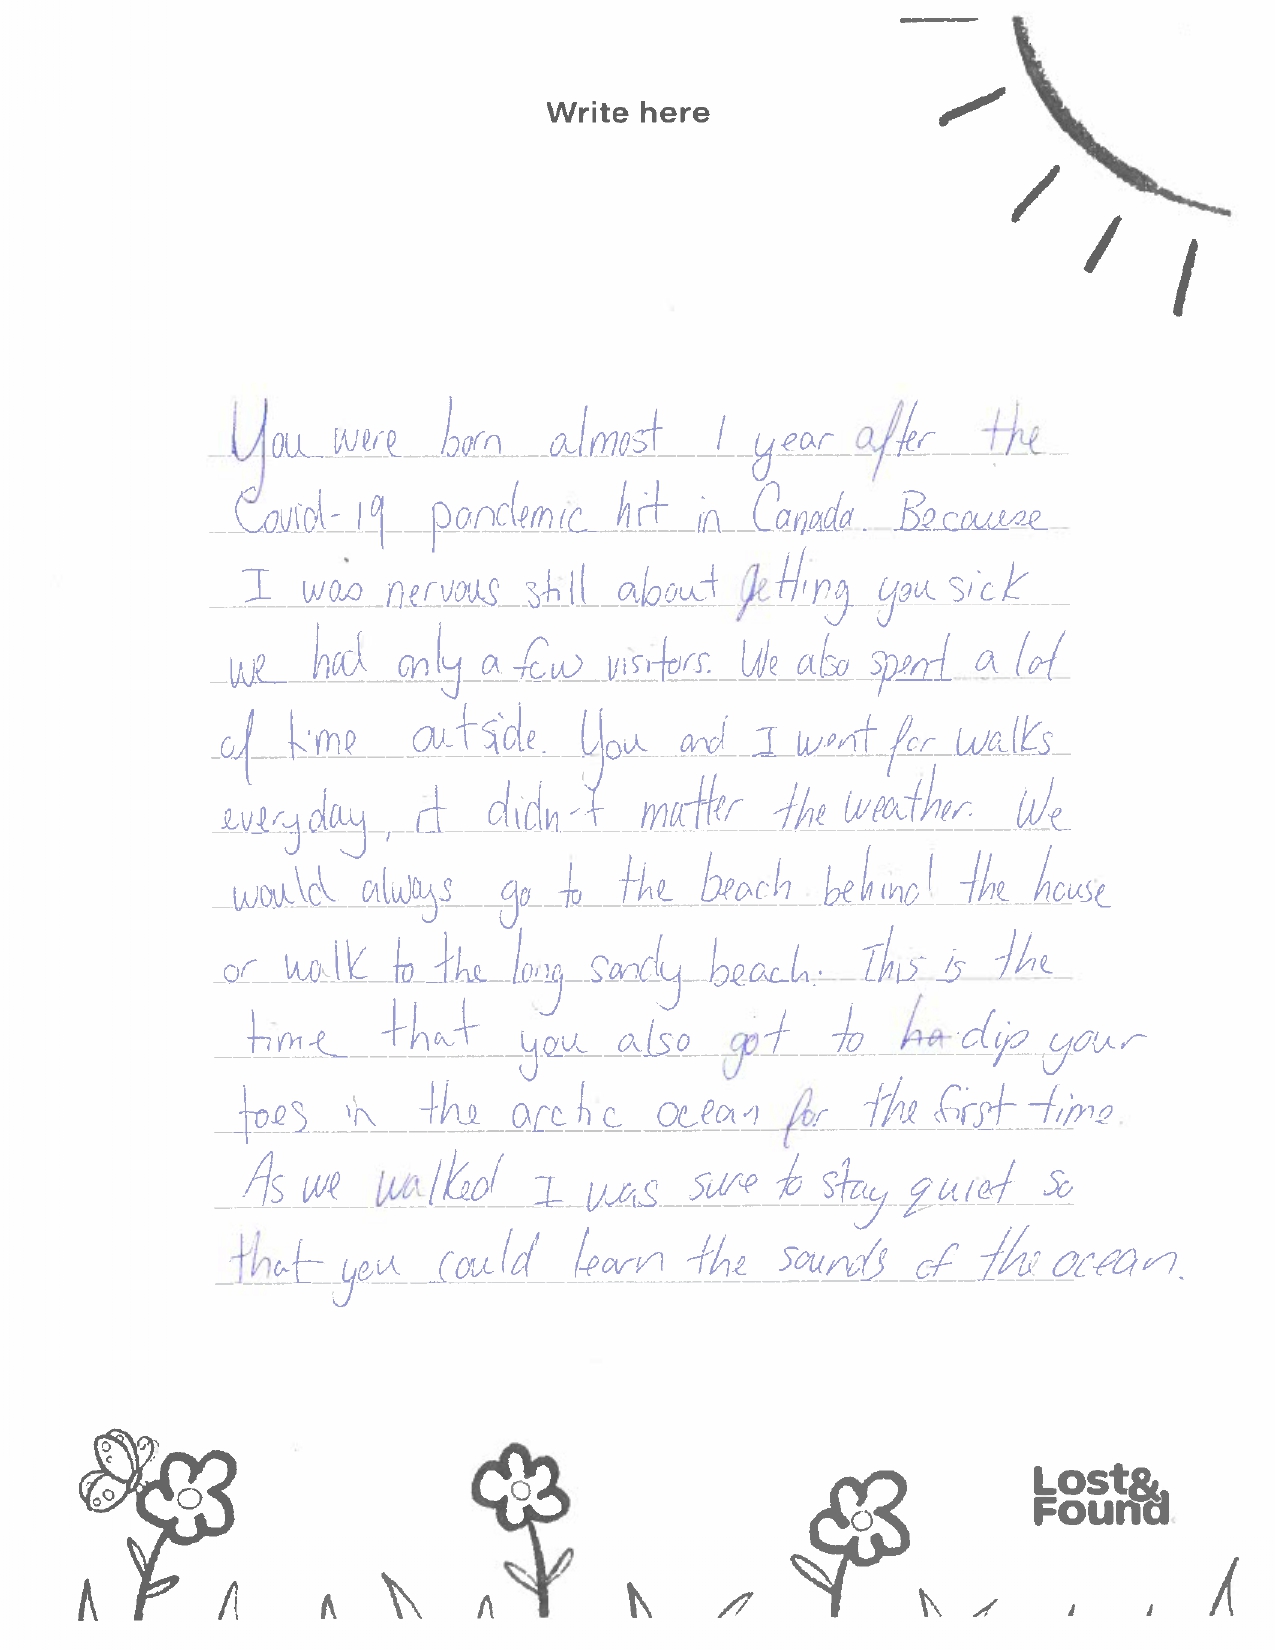 Write here
You were born almost 1 year after the
Covid-19 pandemic hit in Canada. Because
I was nervous still about getting you sick
we had only a few visitors. We also spent a lot
of time outside. You and I went for walks
everyday, it didn-t matter the weather. We
would always go to the beach behind the house
or walk to the long sandy beach. This is the
time that you also got to ha dip your
toes in the arctic ocean for the first time.
As we walked I was sure to stay quiet so
that you could learn the sounds of the ocean.
Lost&
Found